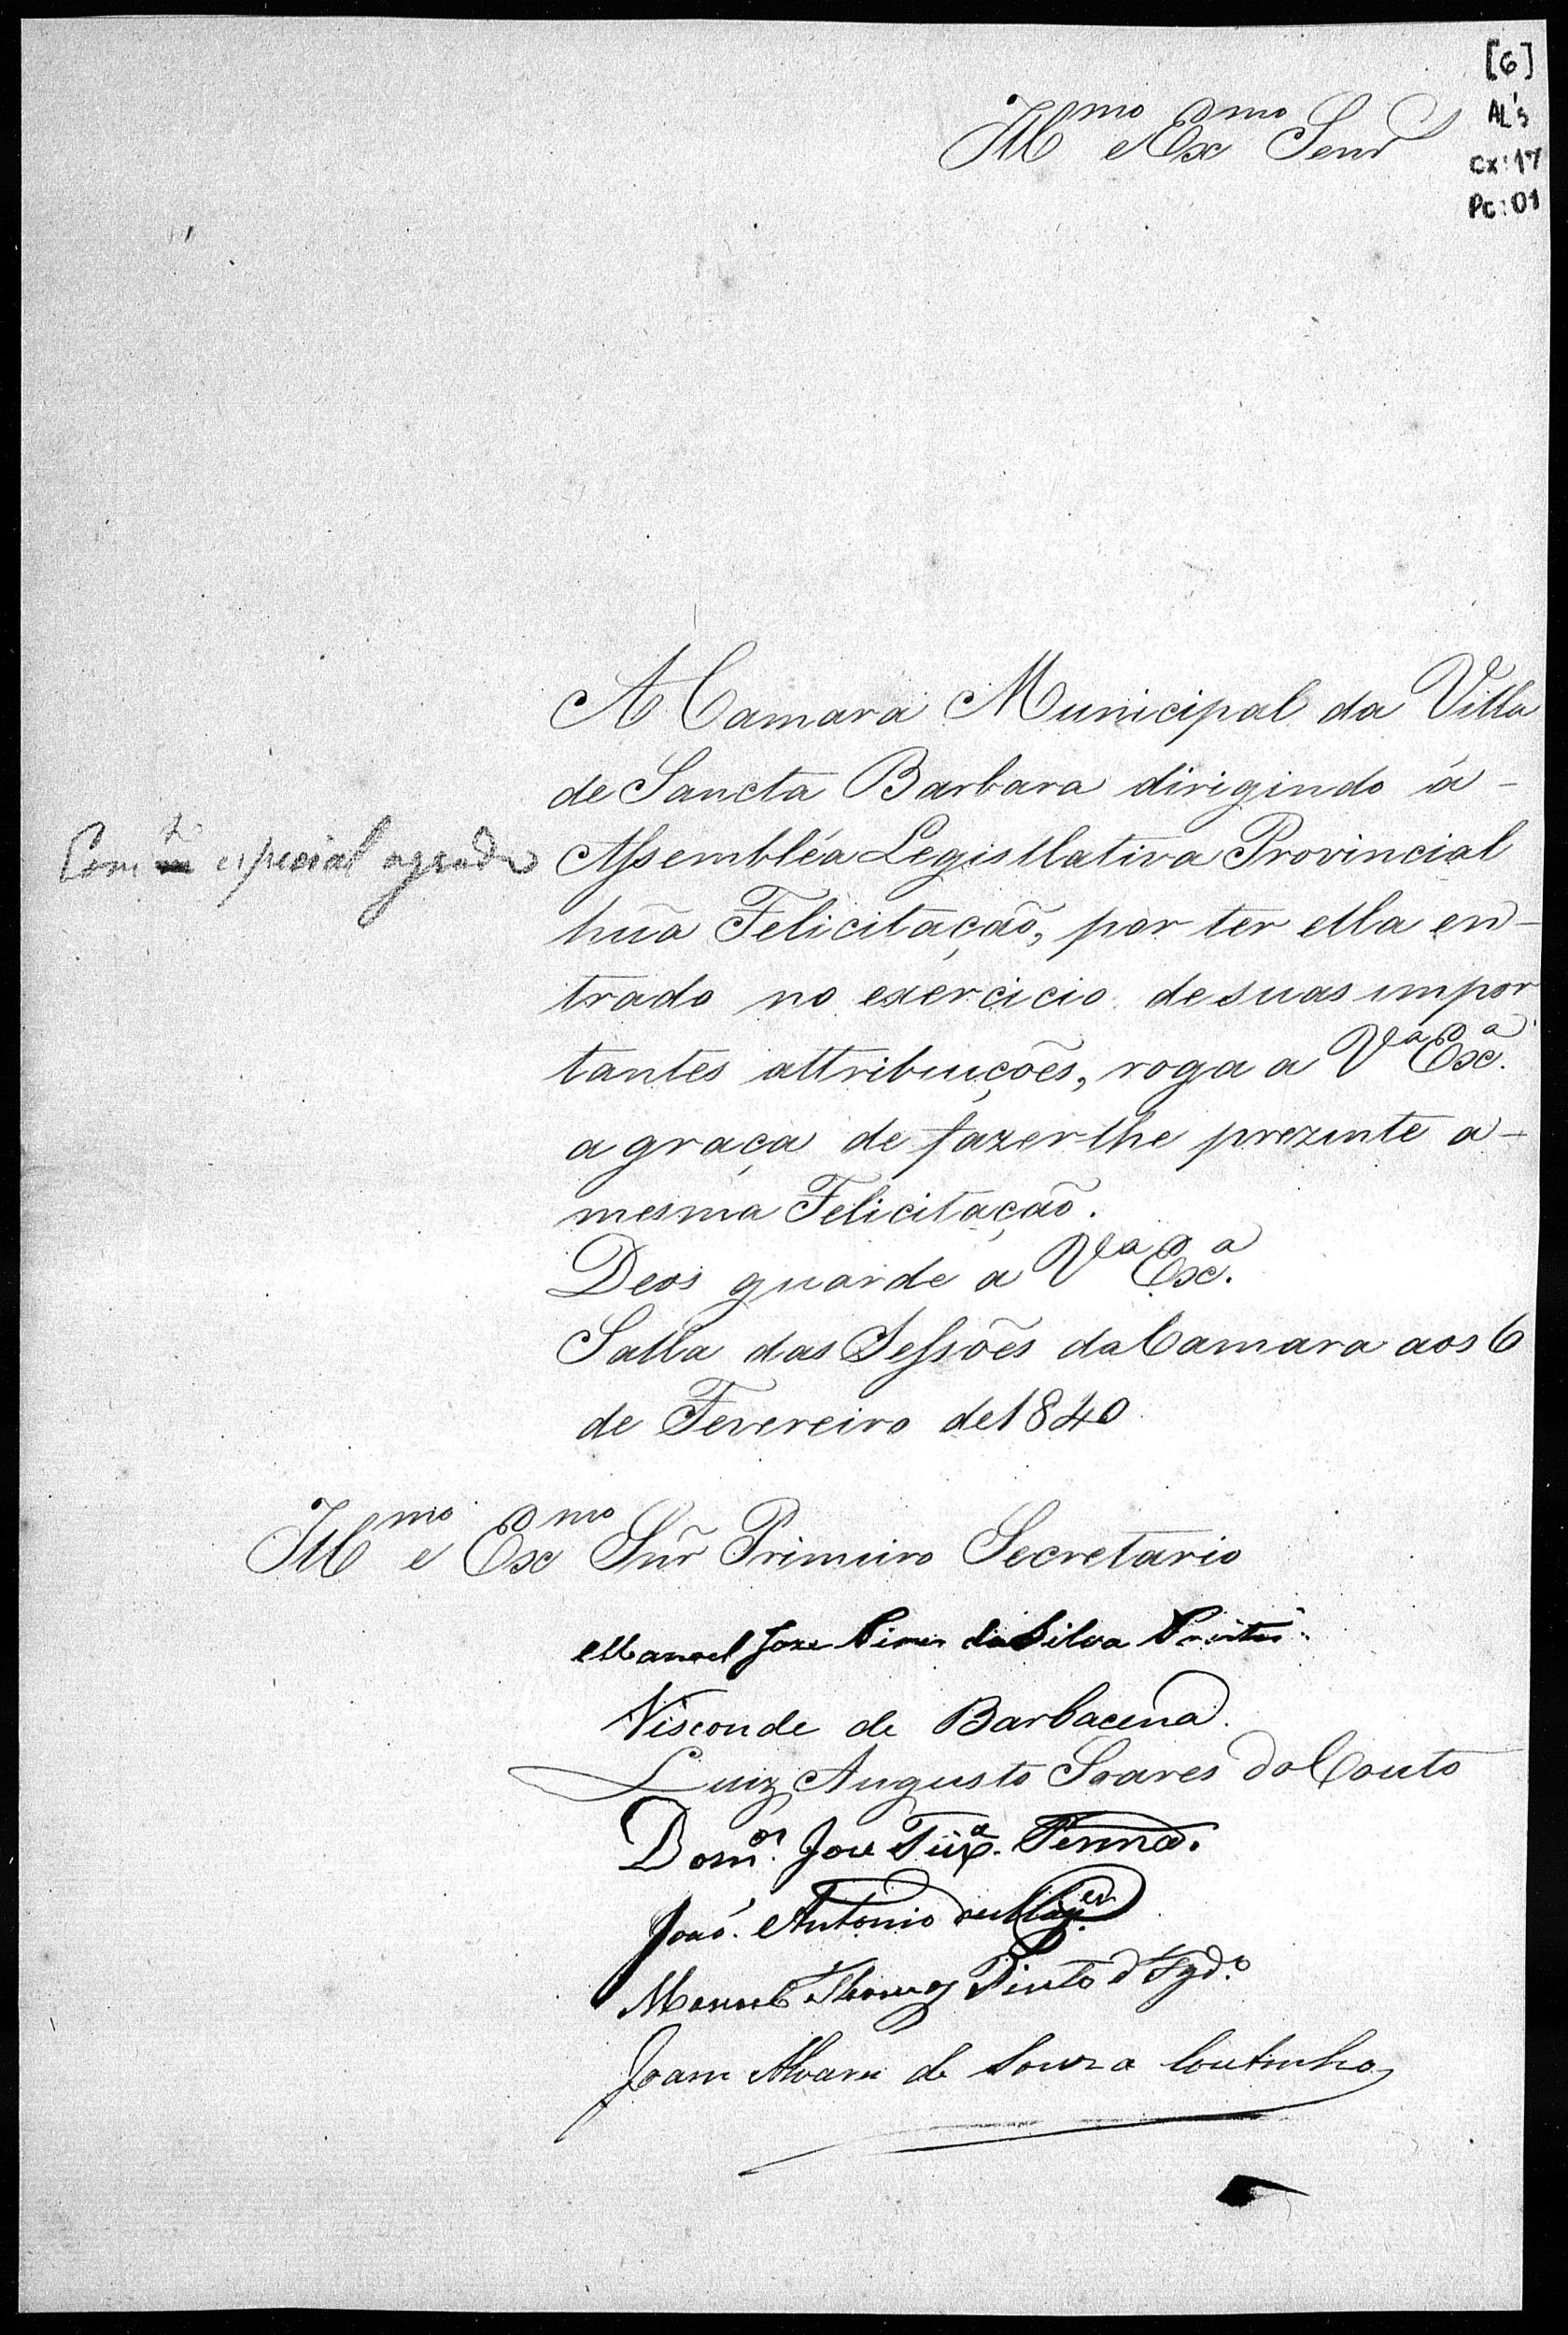 [6]
AL's
cx:17
Pc:01
Ill.mo e Ex.mo Senr
A Camara Municipal da Villa
de Sancta Barbara dirigindo á -
Assembléa Legisllativa Provincial
Com especial agrado
huã Felicitação, por ter ella en-
trado no exercicio de suas impor
tantes attribuições, roga a Va Exca.
a graça de fazer-lhe prezente a -
mesma Felicitação.
Deos guarde a Va Exca.
Salla das Sessões da Camara aos 6
de Fevereiro de 1840
Illmo e Exmo Snr̃ Primeiro Secretario
Manoel Joze Pires da Silva Pontes
Visconde de Barbacena.
Luiz Augusto Soares do Couto
Domos. Joze Teixa. Penna.
João Antonio de
Manoel Thomaz Pinto d Fgdo.
Joam Alvares de Souza Coutinho